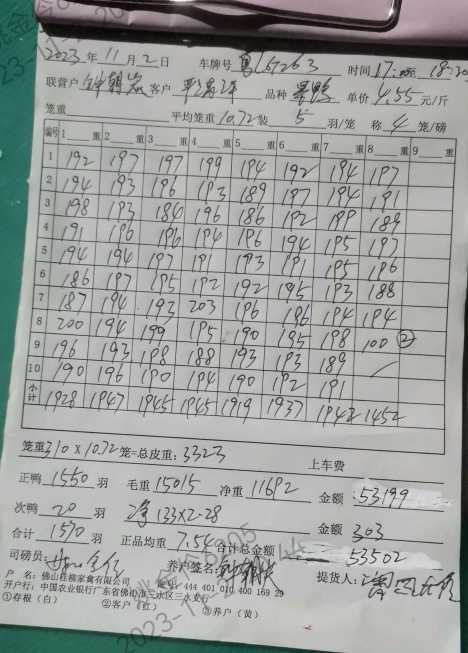 2023年11月2日 车牌号 粤L6726 3 时间17: 18:20
联营户 客户 品种 单价 4.55 元/斤
笼重 平均笼重 10.72 装 5 羽/笼 称 4 笼/磅
编号 1 重 2 重 3 重 4 重 5 重 6 重 7 重 8 重 9 重
1 192 197 197 199 194 192 194 197
2 194 193 196 193 189 197 194 191
3 198 193 184 196 186 192 199 189
4 191 196 196 194 196 194 195 197
5 194 194 197 191 193 191 195 196
6 186 197 195 192 192 195 193 188
7 187 194 193 203 196 186 194 194
8 200 194 199 195 190 195 198 100 ②
9 196 193 198 188 193 193 189
10 190 196 190 194 190 192 191
小计 1928 1947 1945 1945 1919 1937 1942 1452
笼重 310 x 10.72 笼=总皮重: 3323
上车费
正鸭 1550 羽 毛重 15015 净重 11692 金额 53199
次鸭 20 羽 净 133x2.28 金额 303
合计 1570 羽 正品均重 7.54 合计总金额 53502
司磅员: 养户签名: 提货人:
户 名: 佛山桂柳家禽有限公司 444 401 010 400 169 29
开户行: 中国农业银行广东省佛山市三水区三水支行
①存根(白) ②客户(红) ③养户(黄)